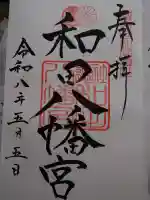 奉拝
和田八幡宮
令和八年五月五日